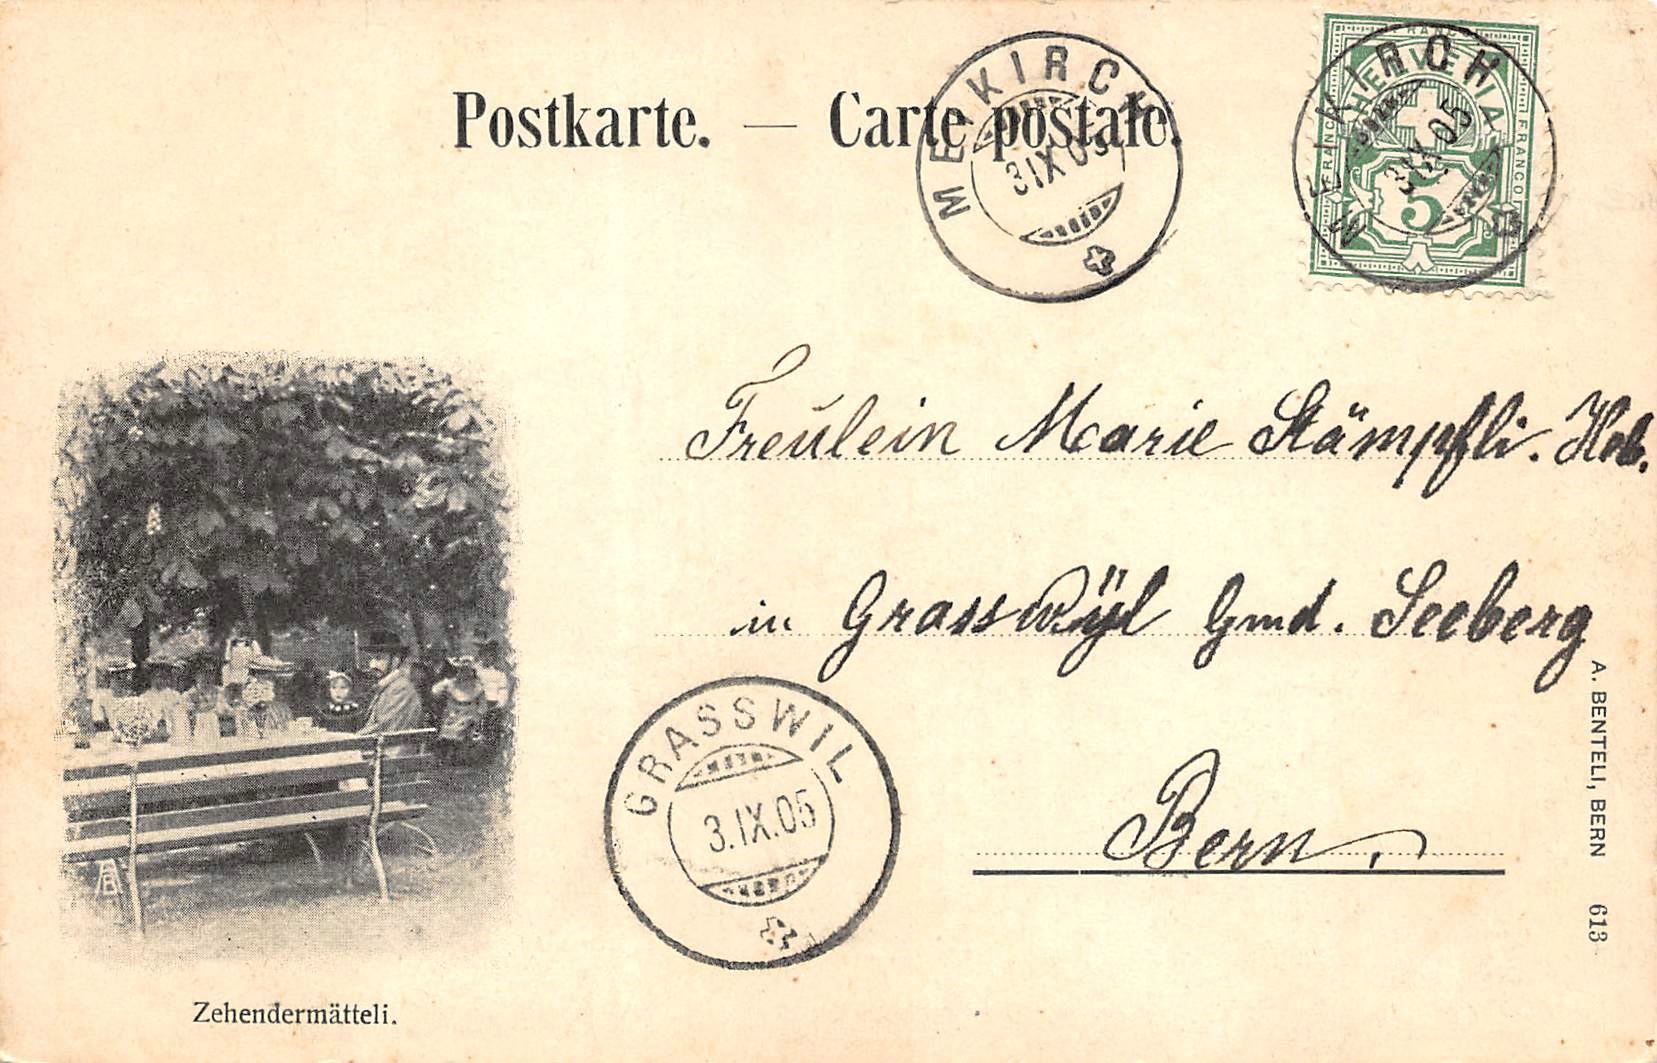 Postkarte. — Carte postale.
MEIKIRCH
3 IX 05
RAN
HELVETIA
FRANCO
FRANCO
5
MEIKIRCH
3 IX 05
Freülein Marie Stämpfli. Heb.
in Grasswÿl Gmd. Seeberg
Bern.
GRASSWIL
3.IX.05
A. BENTELI, BERN 613
Zehendermätteli.